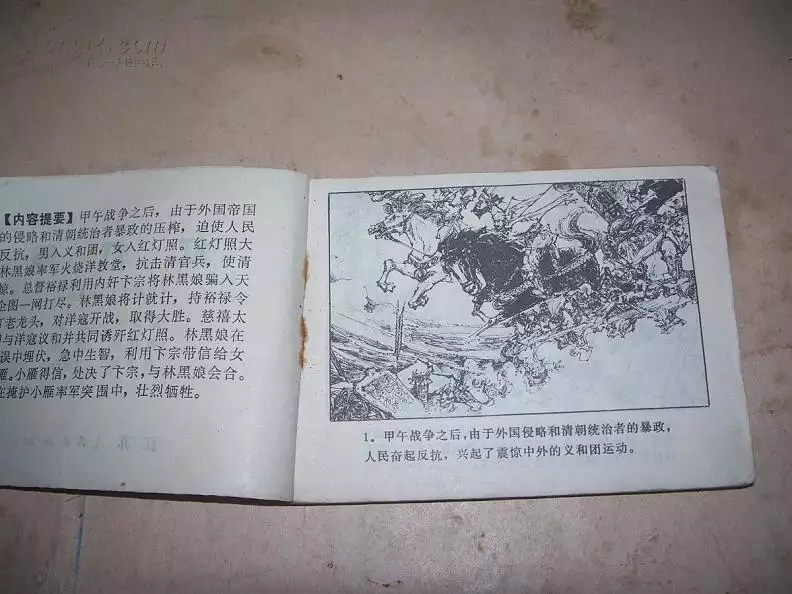 【内容提要】甲午战争之后，由于外国帝国
的侵略和清朝统治者暴政的压榨，迫使人民
反抗，男入义和团，女入红灯照。红灯照大
林黑娘率军火烧洋教堂，抗击清官兵，使清
惊。总督裕禄利用内奸卞宗将林黑娘骗入天
企图一网打尽。林黑娘将计就计，持裕禄令
打老龙头，对洋寇开战，取得大胜。慈禧太
与洋寇议和并共同诱歼红灯照。林黑娘在
误中埋伏，急中生智，利用卞宗带信给女
雁。小雁得信，处决了卞宗，与林黑娘会合。
在掩护小雁率军突围中，壮烈牺牲。
1．甲午战争之后，由于外国侵略和清朝统治者的暴政，
人民奋起反抗，兴起了震惊中外的义和团运动。